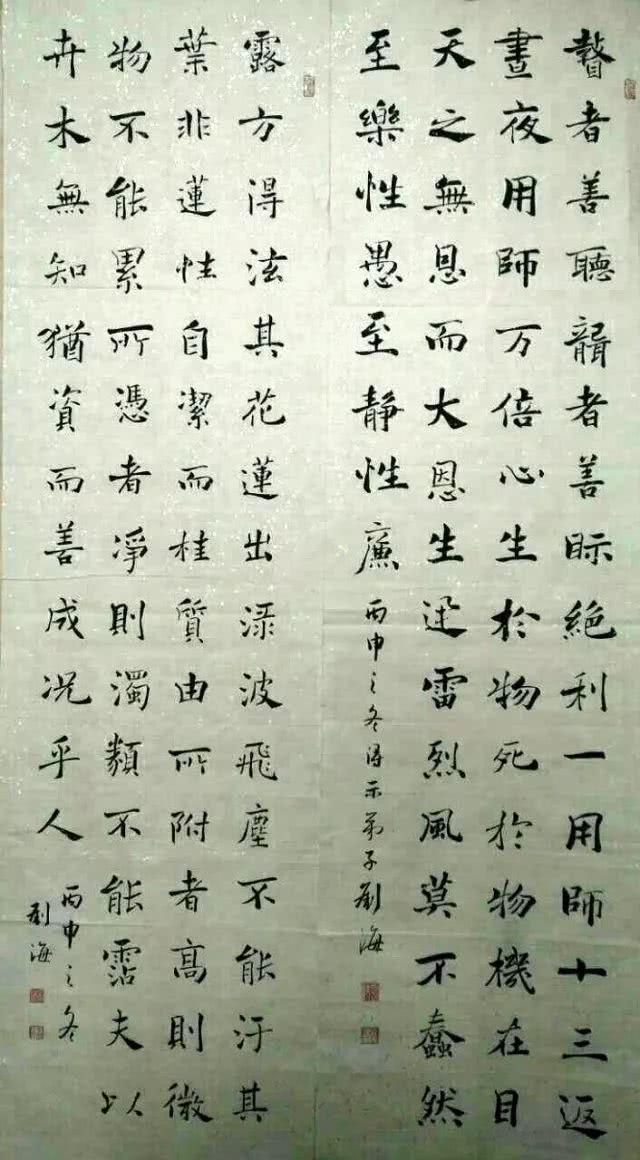 瞽者善聽聾者善眎絕利一用師十三返
晝夜用師万倍心生於物死於物機在目
天之無恩而大恩生迅雷烈風莫不蠢然
至樂性愚至靜性廉
丙申之冬得示弟子劉海
露方得泫其花蓮出淥波飛塵不能汙其
葉非蓮性自潔而桂質由所附者高則微
物不能累所憑者淨則濁類不能霑夫以
卉木無知猶資而善成況乎人
丙申之冬
劉海